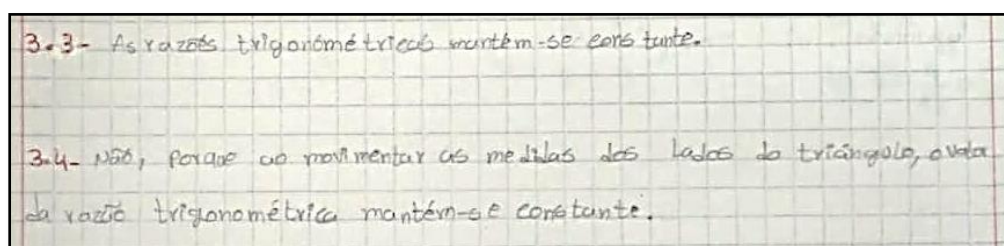 3.3- As razões trigonométricas mantém-se constante.
3.4- Não, porque ao movimentar as medidas dos lados do triângulo, o valor
da razão trigonométrica mantém-se constante.